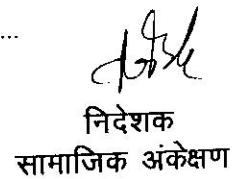 ...
निदेशक
सामाजिक अंकेक्षण